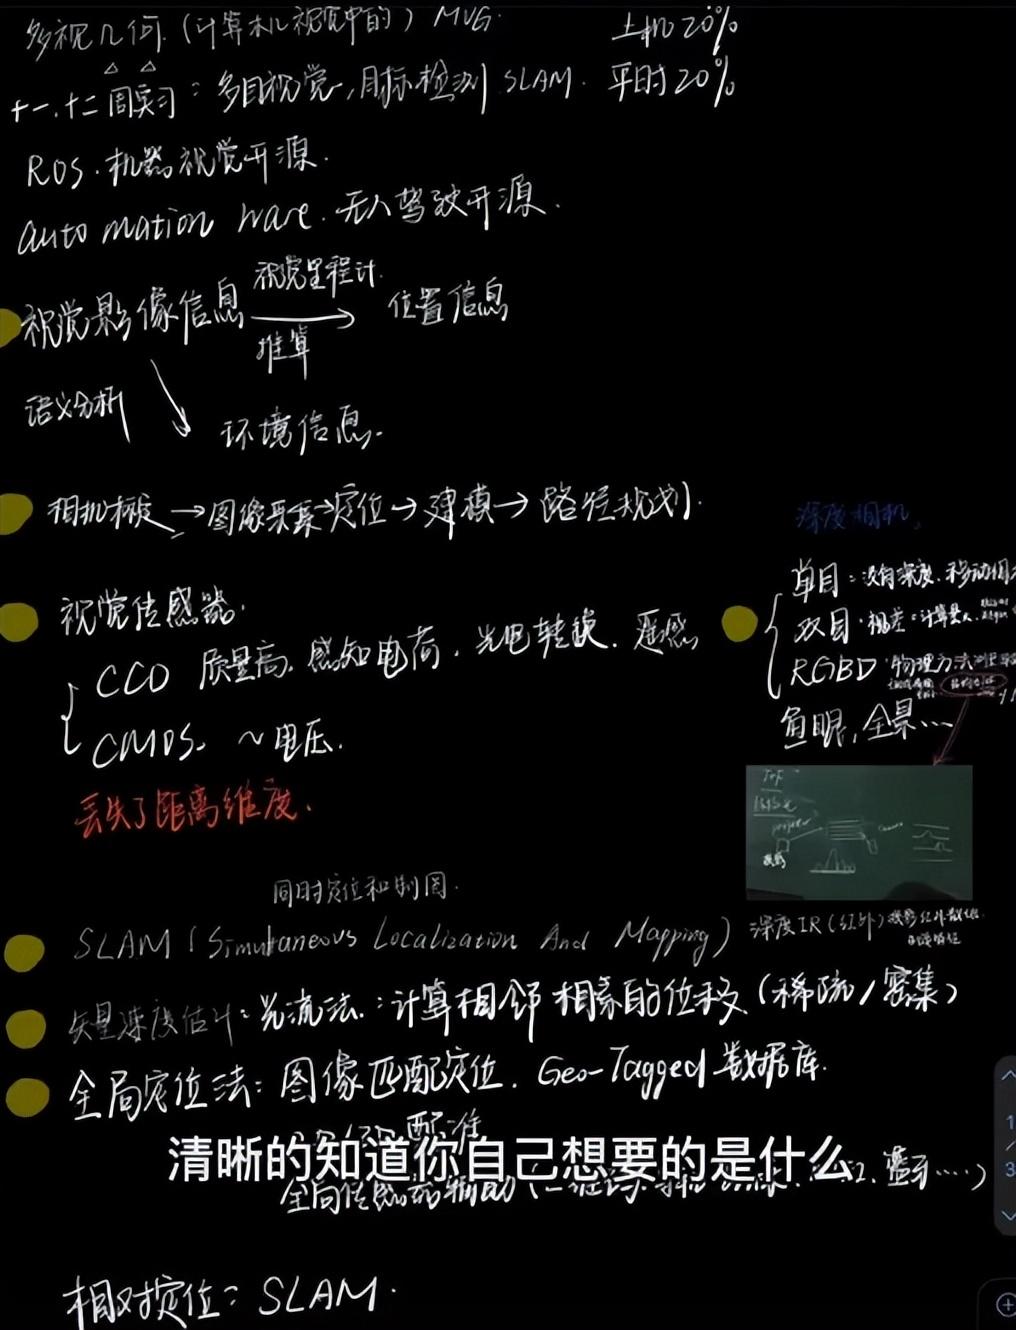 多视几何.(计算机视觉中的) MVG. 上机20%
十一.十二周实习:多目视觉,目标检测 SLAM. 平时20%
ROS.机器视觉开源.
auto mation ware.无人驾驶开源.
视觉里程计.
视觉影像信息 → 位置信息
推算
语义分析
环境信息.
相机模型→图像采集→定位→建模→路径规划.
深度相机,
视觉传感器.
单目:没有深度.移动相
CCD 质量高.感知电荷.光电转换.遥感
双目.视差:计算量大.
RGBD 物理方法测
CMOS. ~电压.
鱼眼,全景...
丢失了距离维度.
TOF
同时定位和制图.
SLAM(Simultaneous Localization And Mapping)
深度IR(红外)投影红外
矢量速度估计:光流法.:计算相邻相素的位移(稀疏/密集)
全局定位法:图像匹配定位.Geo-Tagged数据库.
配准
清晰的知道你自己想要的是什么
全局传感器辅助(
相对定位:SLAM.
1
/
3